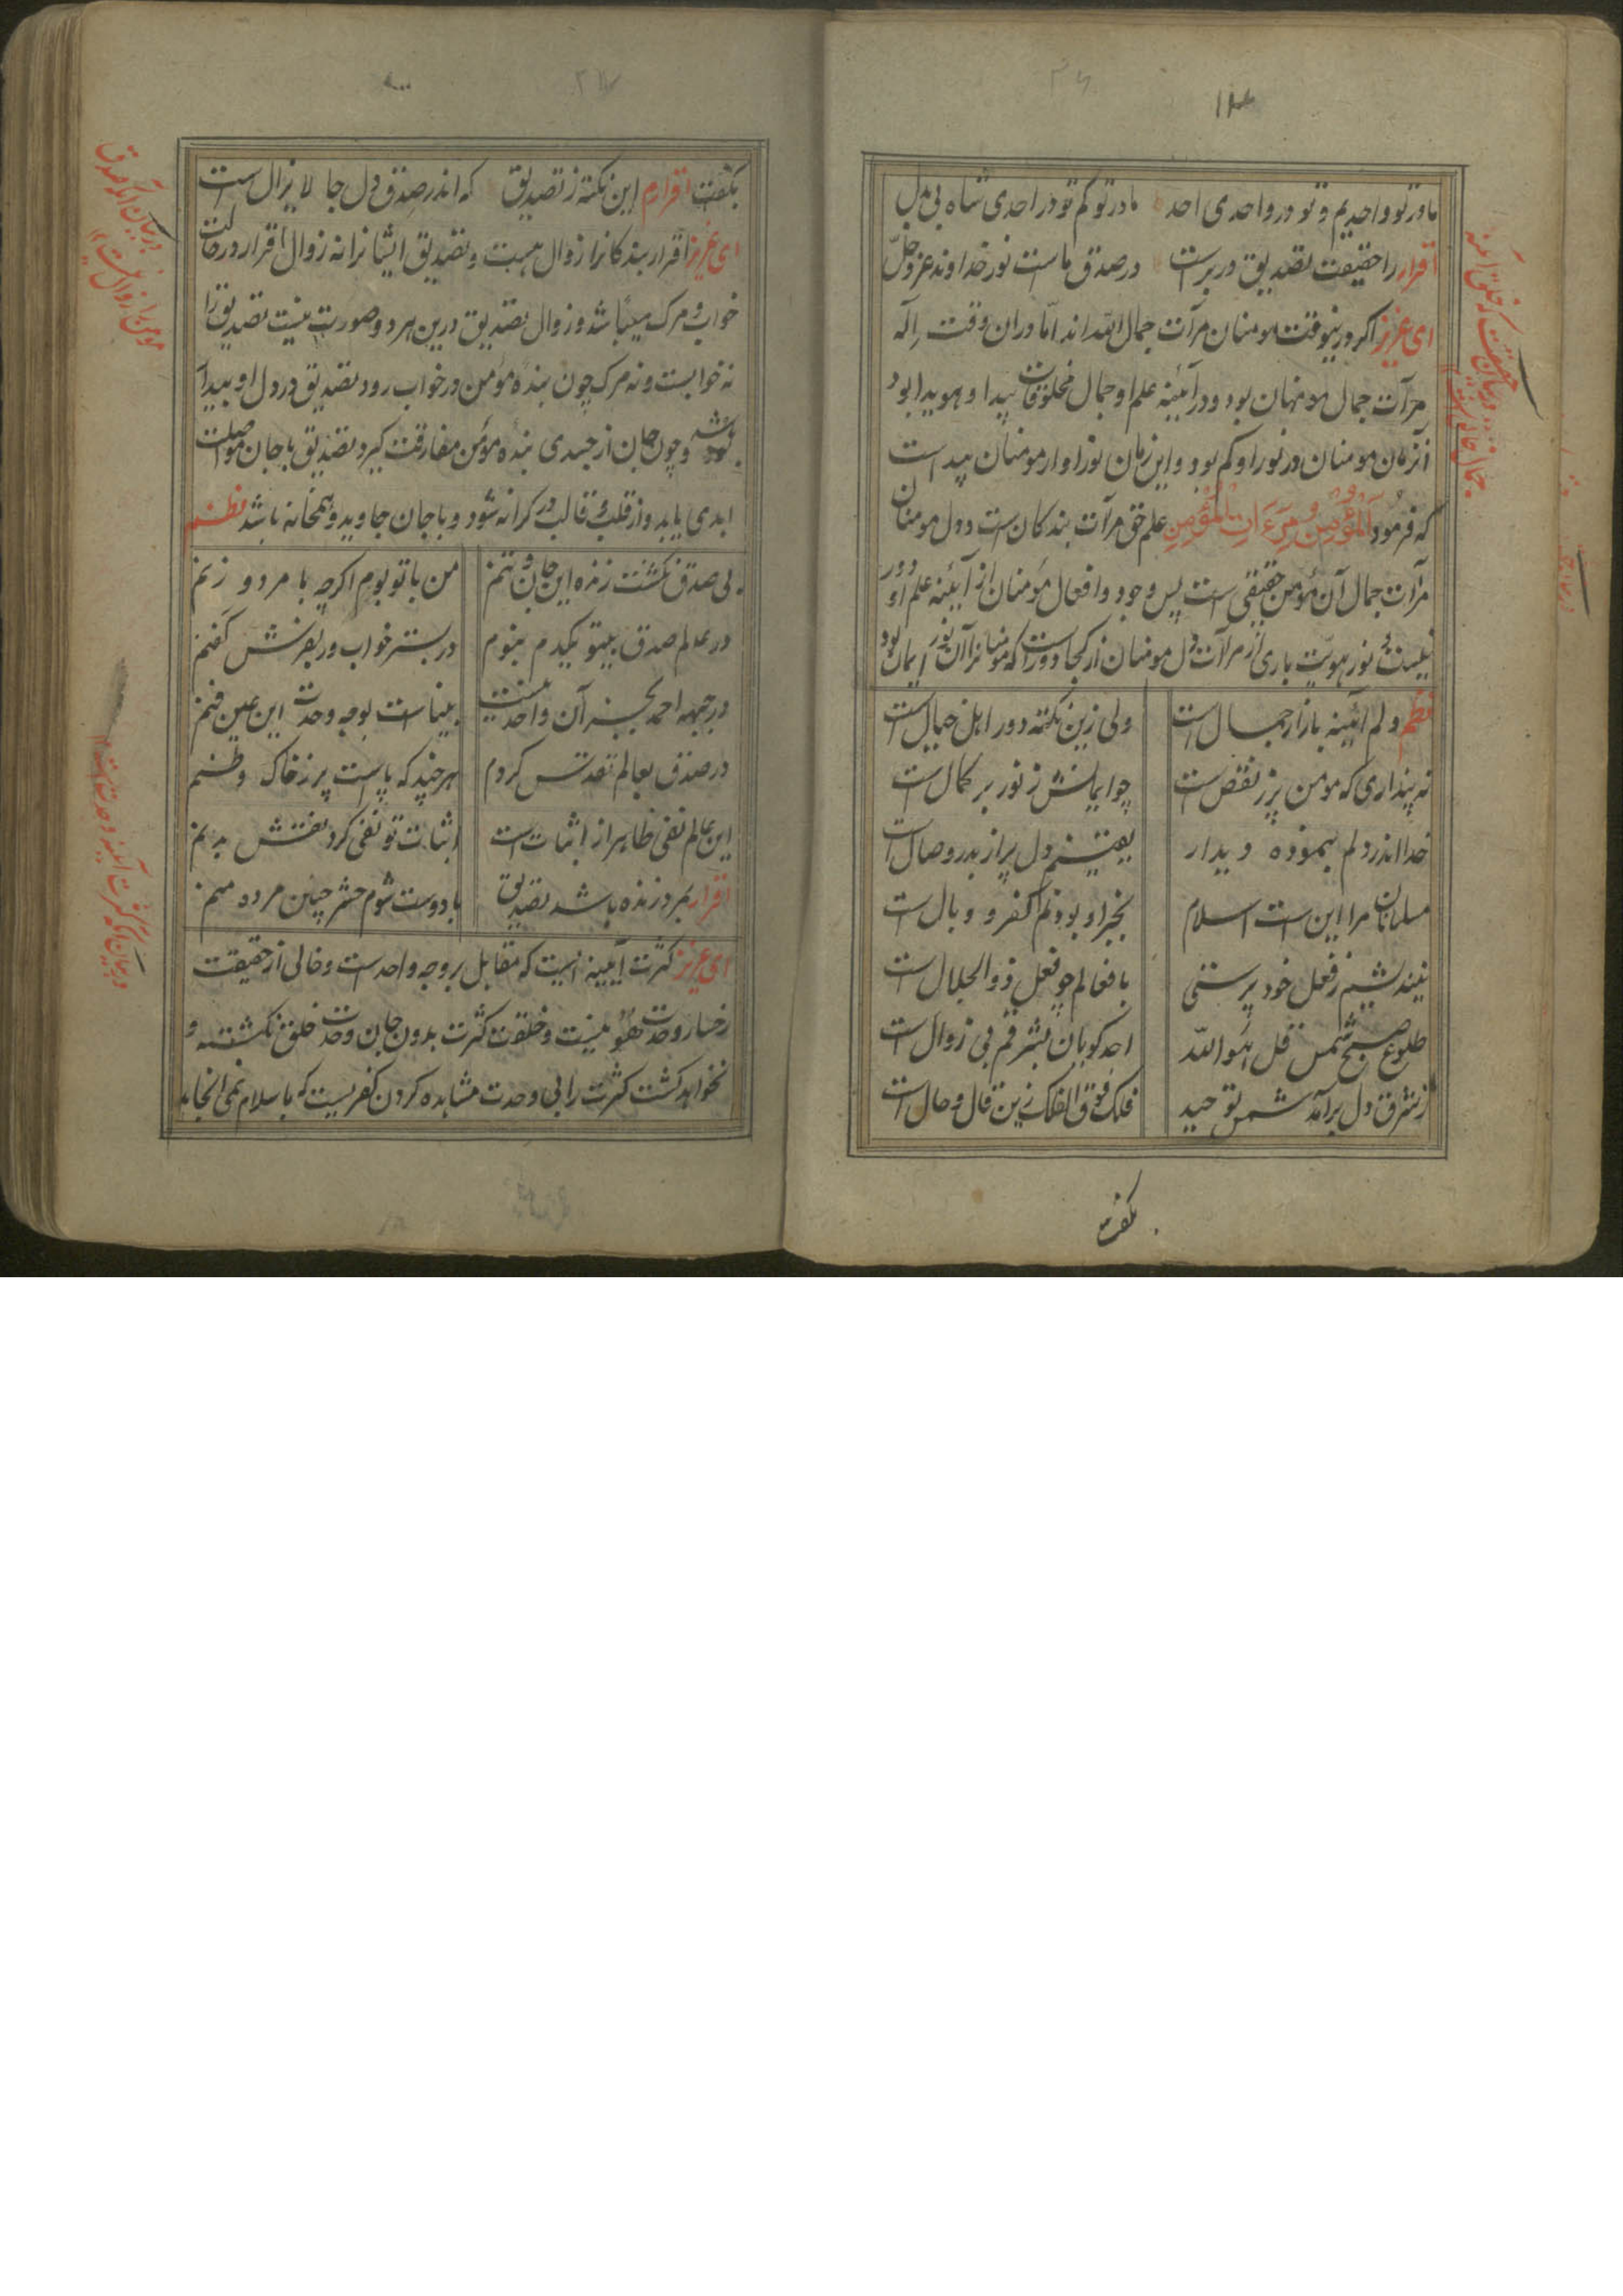 ما در تو واحدیم و تو در واحدی احد ما در تو کم تو در احدی شاه بی بدل
اقرار را حقیقت تصدیق در برست در صدق ماست نور خداوند عز و جل
ای عزیز اکر درینوقت مومنان مرآت جمال الله اند اما در ان وقت اله
مرآت جمال مومنان بود و در آئینه علم او جمال مخلوقات پیدا و هویدا بود
آنزمان مومنان در نور او کم بود و این زمان نور او از مومنان پیداست
که فرمود المؤمن مرءات المؤمن علم حق مرآت بندکان ست و دل مومنان
مرآت جمال آن مؤمن حقیقی است پس وجود و افعال مؤمنان از آیئنه علم او دور
نیست و نور هویت باری از مرآت دل مومنان از کجا دورست که مومنانرا آن نور ایمان بود
نظم دلم آئینه بازار جمال است ولی زین نکته دور اهل خیال است
نه پنداری که مومن پر ز نقص ست چو ایمانش ز نور بر کمال است
خدا اندر دلم بنموده دیدار یقینم دل پر از بدر وصال است
مسلمانان مرا این ست اسلام بجز او بودنم کفر و وبال است
نیندیشم ز فعل خود پرستی با فعالم چو فعل ذو الجلال است
طلوع صبح شمس قل هو الله احد کویان بشرقم بی زوال است
ز شرق دل برآمد شمس توحید فلک فوق الفلک زین قال و حال است
بکفت
بکفت اقرارم این نکته ز تصدیق که اندر صدق دل جا لا یزال است
ای عزیز اقرار بندکانرا زوال هست و تصدیق ایشانرا نه زوال اقرار در حالت
خواب و مرک میباشد و زوال تصدیق درین هر دو صورت نیست تصدیق را
نه خوابست و نه مرک چون بنده مؤمن در خواب رود تصدیق در دل او بیدار
باشد و چون جان از جسدی بنده مؤمن مفارقت کیرد تصدیق با جان مواصلت
ابدی یابد و از قلب و قالب در کرانه شود و با جان جاوید و همخانه باشد نظم
بی صدق نکشت زنده این جان و تنم من با تو بوم اکرچه با مرد و زنم
در عالم صدق بیتو یکدم نبوم در بستر خواب ور بفرش کفنم
در جبهه احمد بجز آن واحد نیست بیناست بوجه وحدت این عین فنم
در صدق بعالم تقدس کردم هر چند که پاست پر ز خاک وطنم
این عالم نفی ظاهر از اثبات است اثبات تو نفی کرد نقش بدنم
اقرار بمرد زنده باشد تصدیق با دوست شوم حشر چنین مرده منم
ای عزیز کثرت آیینه ایست که مقابل بر وجه واحد ست و خالی از حقیقت
رخسار وحدت هو نیست و خلقت کثرت بدون جان وحدت خلق نکشته و
نخواهد کشت کثرت را بی وحدت مشاهده کردن کفریست که باسلام نمی انجامد